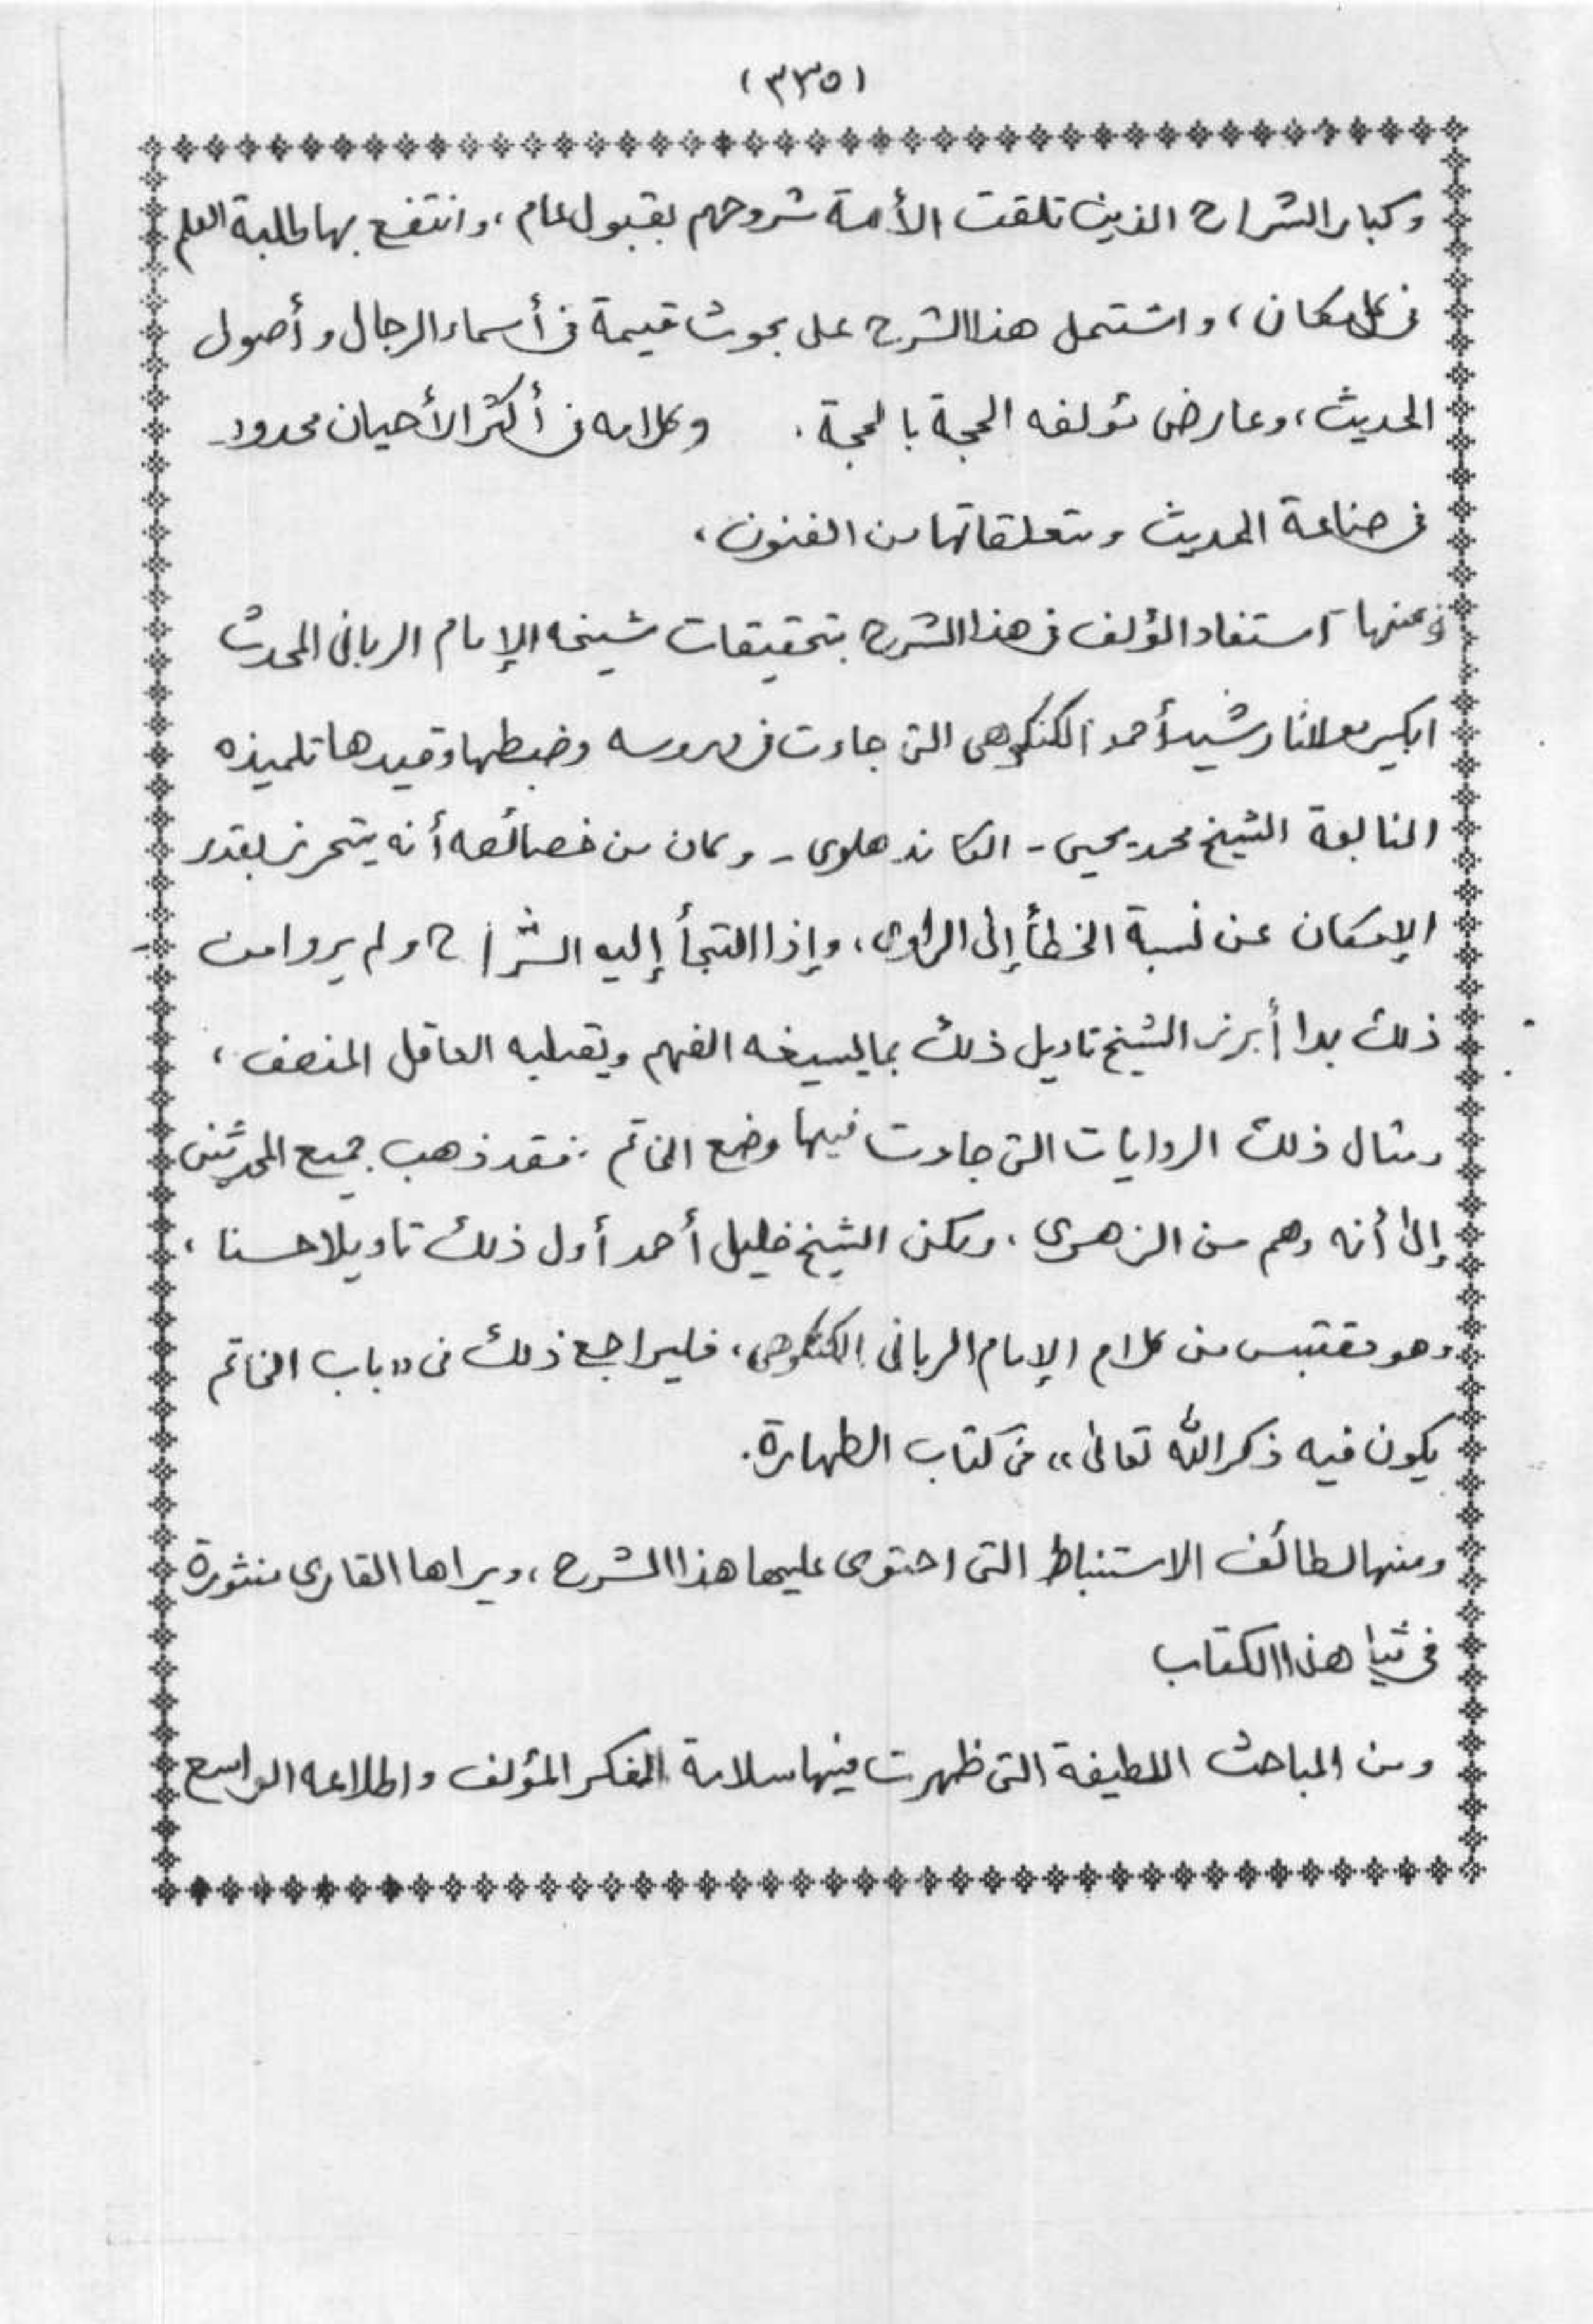 (٣٣٥)
وكبار الشراح الذين تلقت الأمة شروحهم بقبول عام، وانتفع بها طلبة العلم
فى كل مكان، واشتمل هذا الشرح على بحوث قيمة فى أسماء الرجال وأصول
الحديث، وعارض مؤلفه الحجة بالحجة. وكلامه فى أكثر الأحيان محدود
فى صناعة الحديث ومتعلقاتها من الفنون،
ومنها استفاد المؤلف فى هذا الشرح بتحقيقات شيخه الإمام الربانى المحدث
الكبير مولانا رشيد أحمد الكنكوهى التى جاءت فى دروسه وضبطها وقيدها تلميذه
النابعة الشيخ محمد يحيى - الكاندهلوى - وكان من خصائصه أنه يتحرز بقدر
الإمكان عن نسبة الخطأ إلى الراوى، وإذا التجأ إليه الشراح ولم يروا من
ذلك بدا أبرز الشيخ تاويل ذلك بما يسيغه الفهم ويقبله العاقل المنصف،
ومثال ذلك الروايات التى جاءت فيها وضع الخاتم. فقد ذهب جميع المحدثين
إلى أنه وهم من الزهرى، ولكن الشيخ خليل أحمد أول ذلك تاويلا حسنا،
وهو مقتبس من كلام الإمام الربانى الكنكوهى، فليراجع ذلك فى «باب الخاتم
يكون فيه ذكر الله تعالى» فى كتاب الطهارة.
ومنها لطائف الاستنباط التى احتوى عليها هذا الشرح، ويراها القارى منثورة
فى ثنيا هذا الكتاب
ومن المباحث اللطيفة التى ظهرت فيها سلامة الفكر المؤلف واطلاعه الواسع